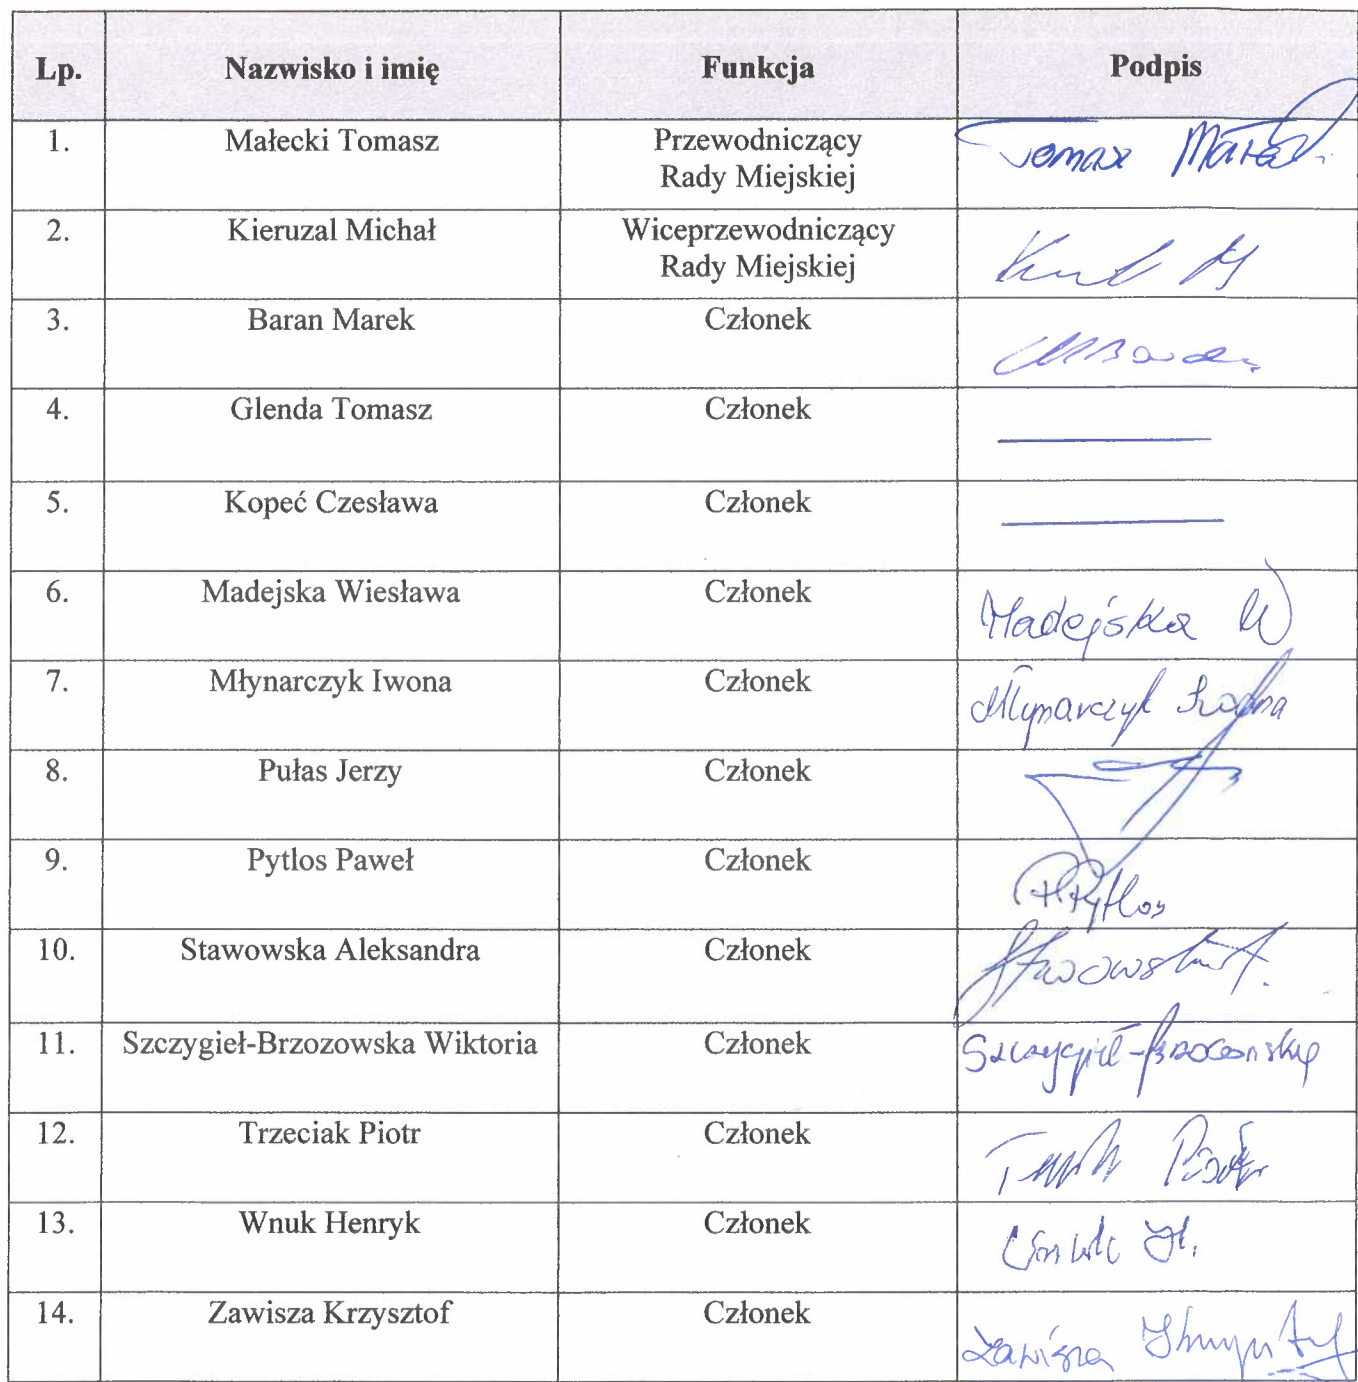 Lp. Nazwisko i imię Funkcja Podpis
1. Małecki Tomasz Przewodniczący
Rady Miejskiej
Tomasz
2. Kieruzal Michał Wiceprzewodniczący
Rady Miejskiej
3. Baran Marek Członek
4. Glenda Tomasz Członek
5. Kopeć Czesława Członek
6. Madejska Wiesława Członek
Madejska W
7. Młynarczyk Iwona Członek
Młynarczyk Iwona
8. Pułas Jerzy Członek
9. Pytlos Paweł Członek
P.Pytlos
10. Stawowska Aleksandra Członek
11. Szczygieł-Brzozowska Wiktoria Członek
Szczygieł-Brzozowska
12. Trzeciak Piotr Członek
Piotr
13. Wnuk Henryk Członek
Wnuk H.
14. Zawisza Krzysztof Członek
Zawisza Krzysztof